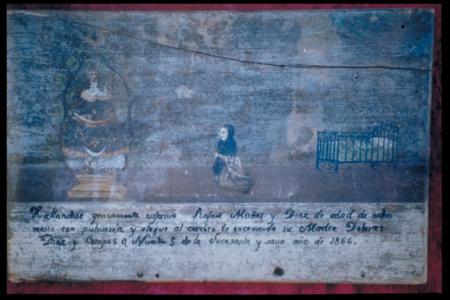 Hallandose gravemente enfermo Rafael Muñoz y Diaz de edad de ocho
meses con pulmonia y alogue al cerebro lo encomendó su Madre Dolores
Diaz y Campos a Nuestra S de la Fuensanta y sano año de 1866.